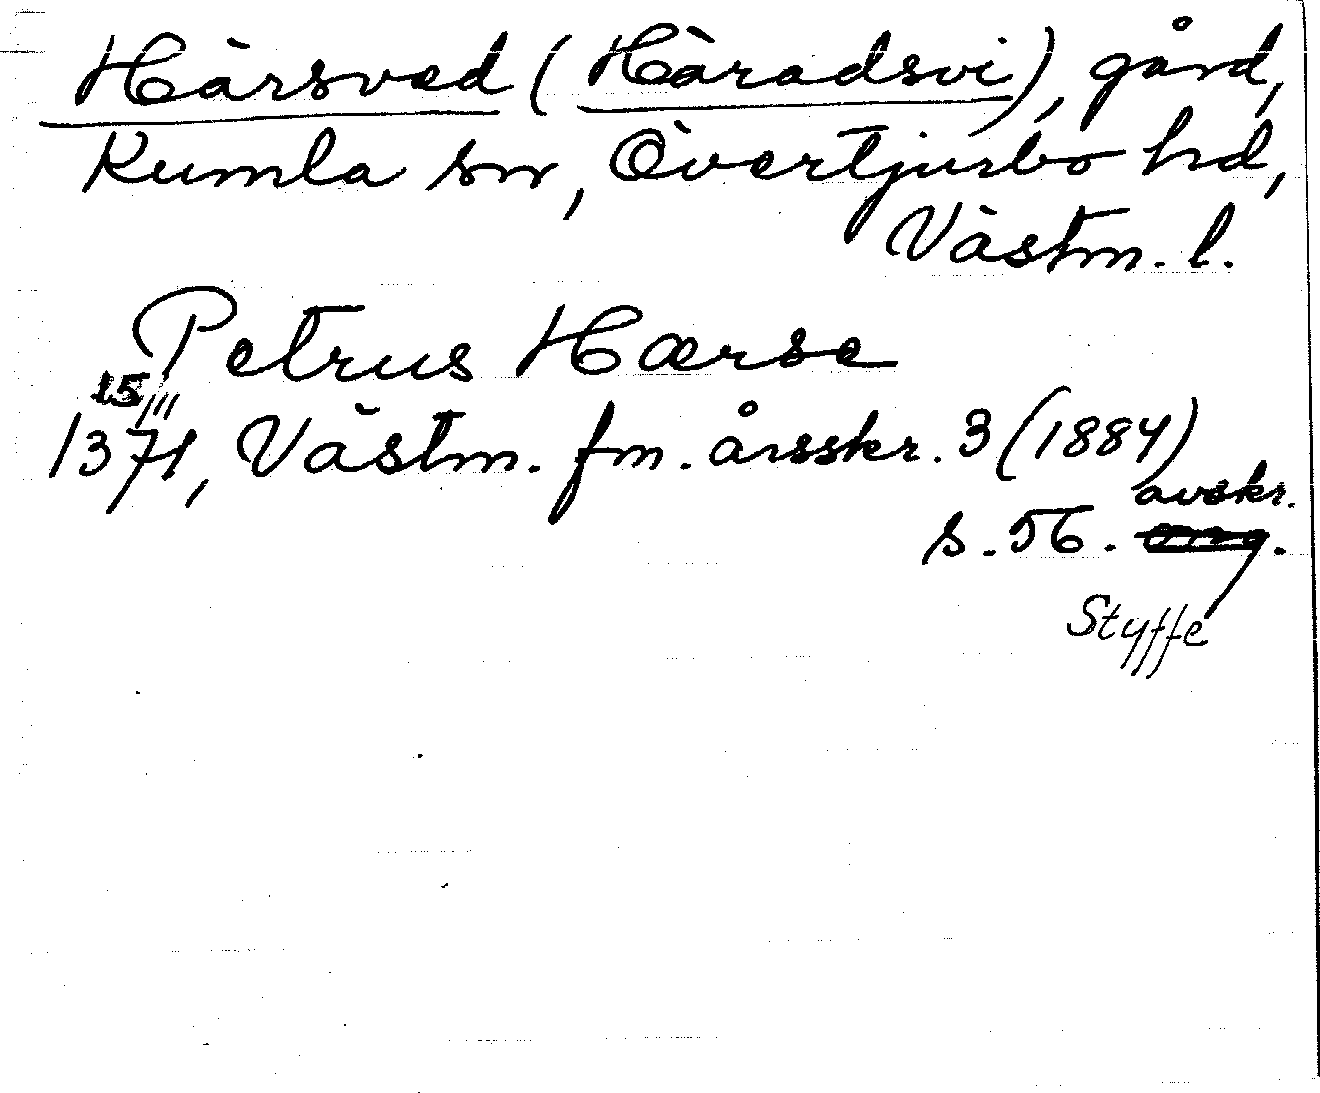 Härsved (Häradsvi), gård,
Kumla sn, Övertjurbo hd,
Västm. l.
Petrus Hærse
15/III
1371, Västm. fm. årsskr. 3 (1884)
s. 56. avskr.
Styffe